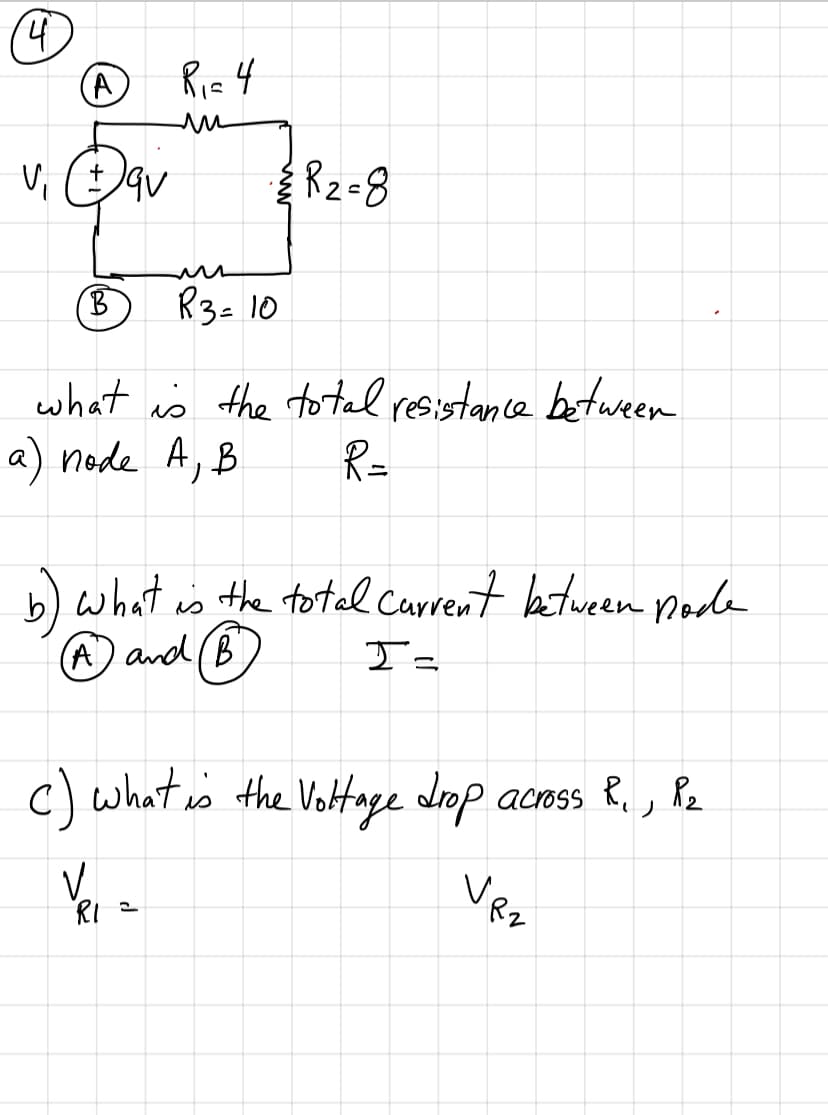 4
A R1= 4
V1 + - 9V R2=8
B R3= 10
what is the total resistance between
a) node A, B R=
b) what is the total current between node
A and B I =
c) what is the Voltage drop across R1, R2
VR1 = VR2